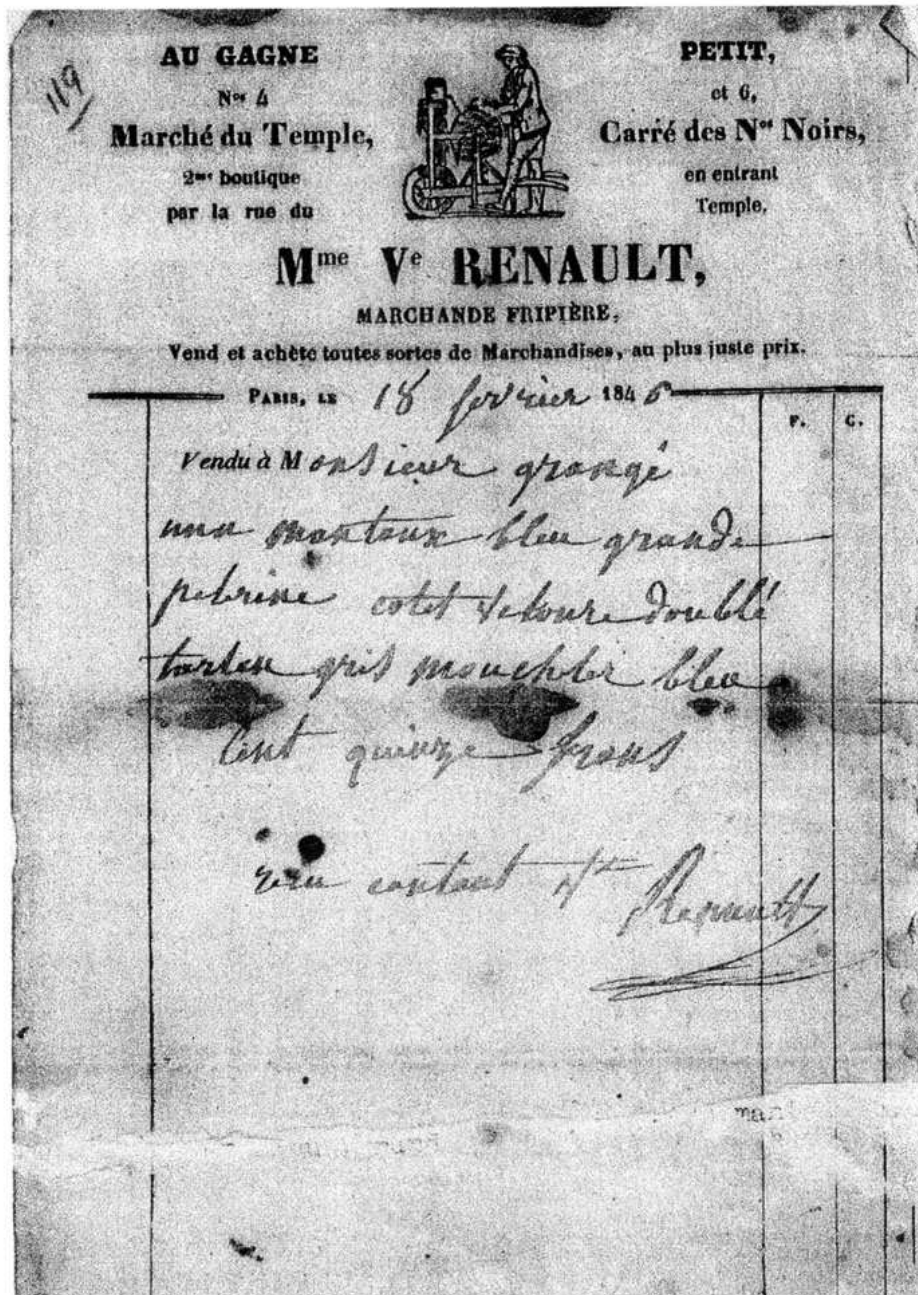 119
AU GAGNE PETIT,
Nos 4 et 6,
Marché du Temple, Carré des Nos Noirs,
2me boutique en entrant
par la rue du Temple.
Mme Ve RENAULT,
MARCHANDE FRIPIÈRE,
Vend et achète toutes sortes de Marchandises, au plus juste prix.
PARIS, LE 18 fevrier 1846
F. C.
Vendu à Monsieur grangé
une mantaux bleu grande
pelerine colet veloure doublé
tartan gris mouchter bleu
Cent quinze frans
recu contant Ve Renault